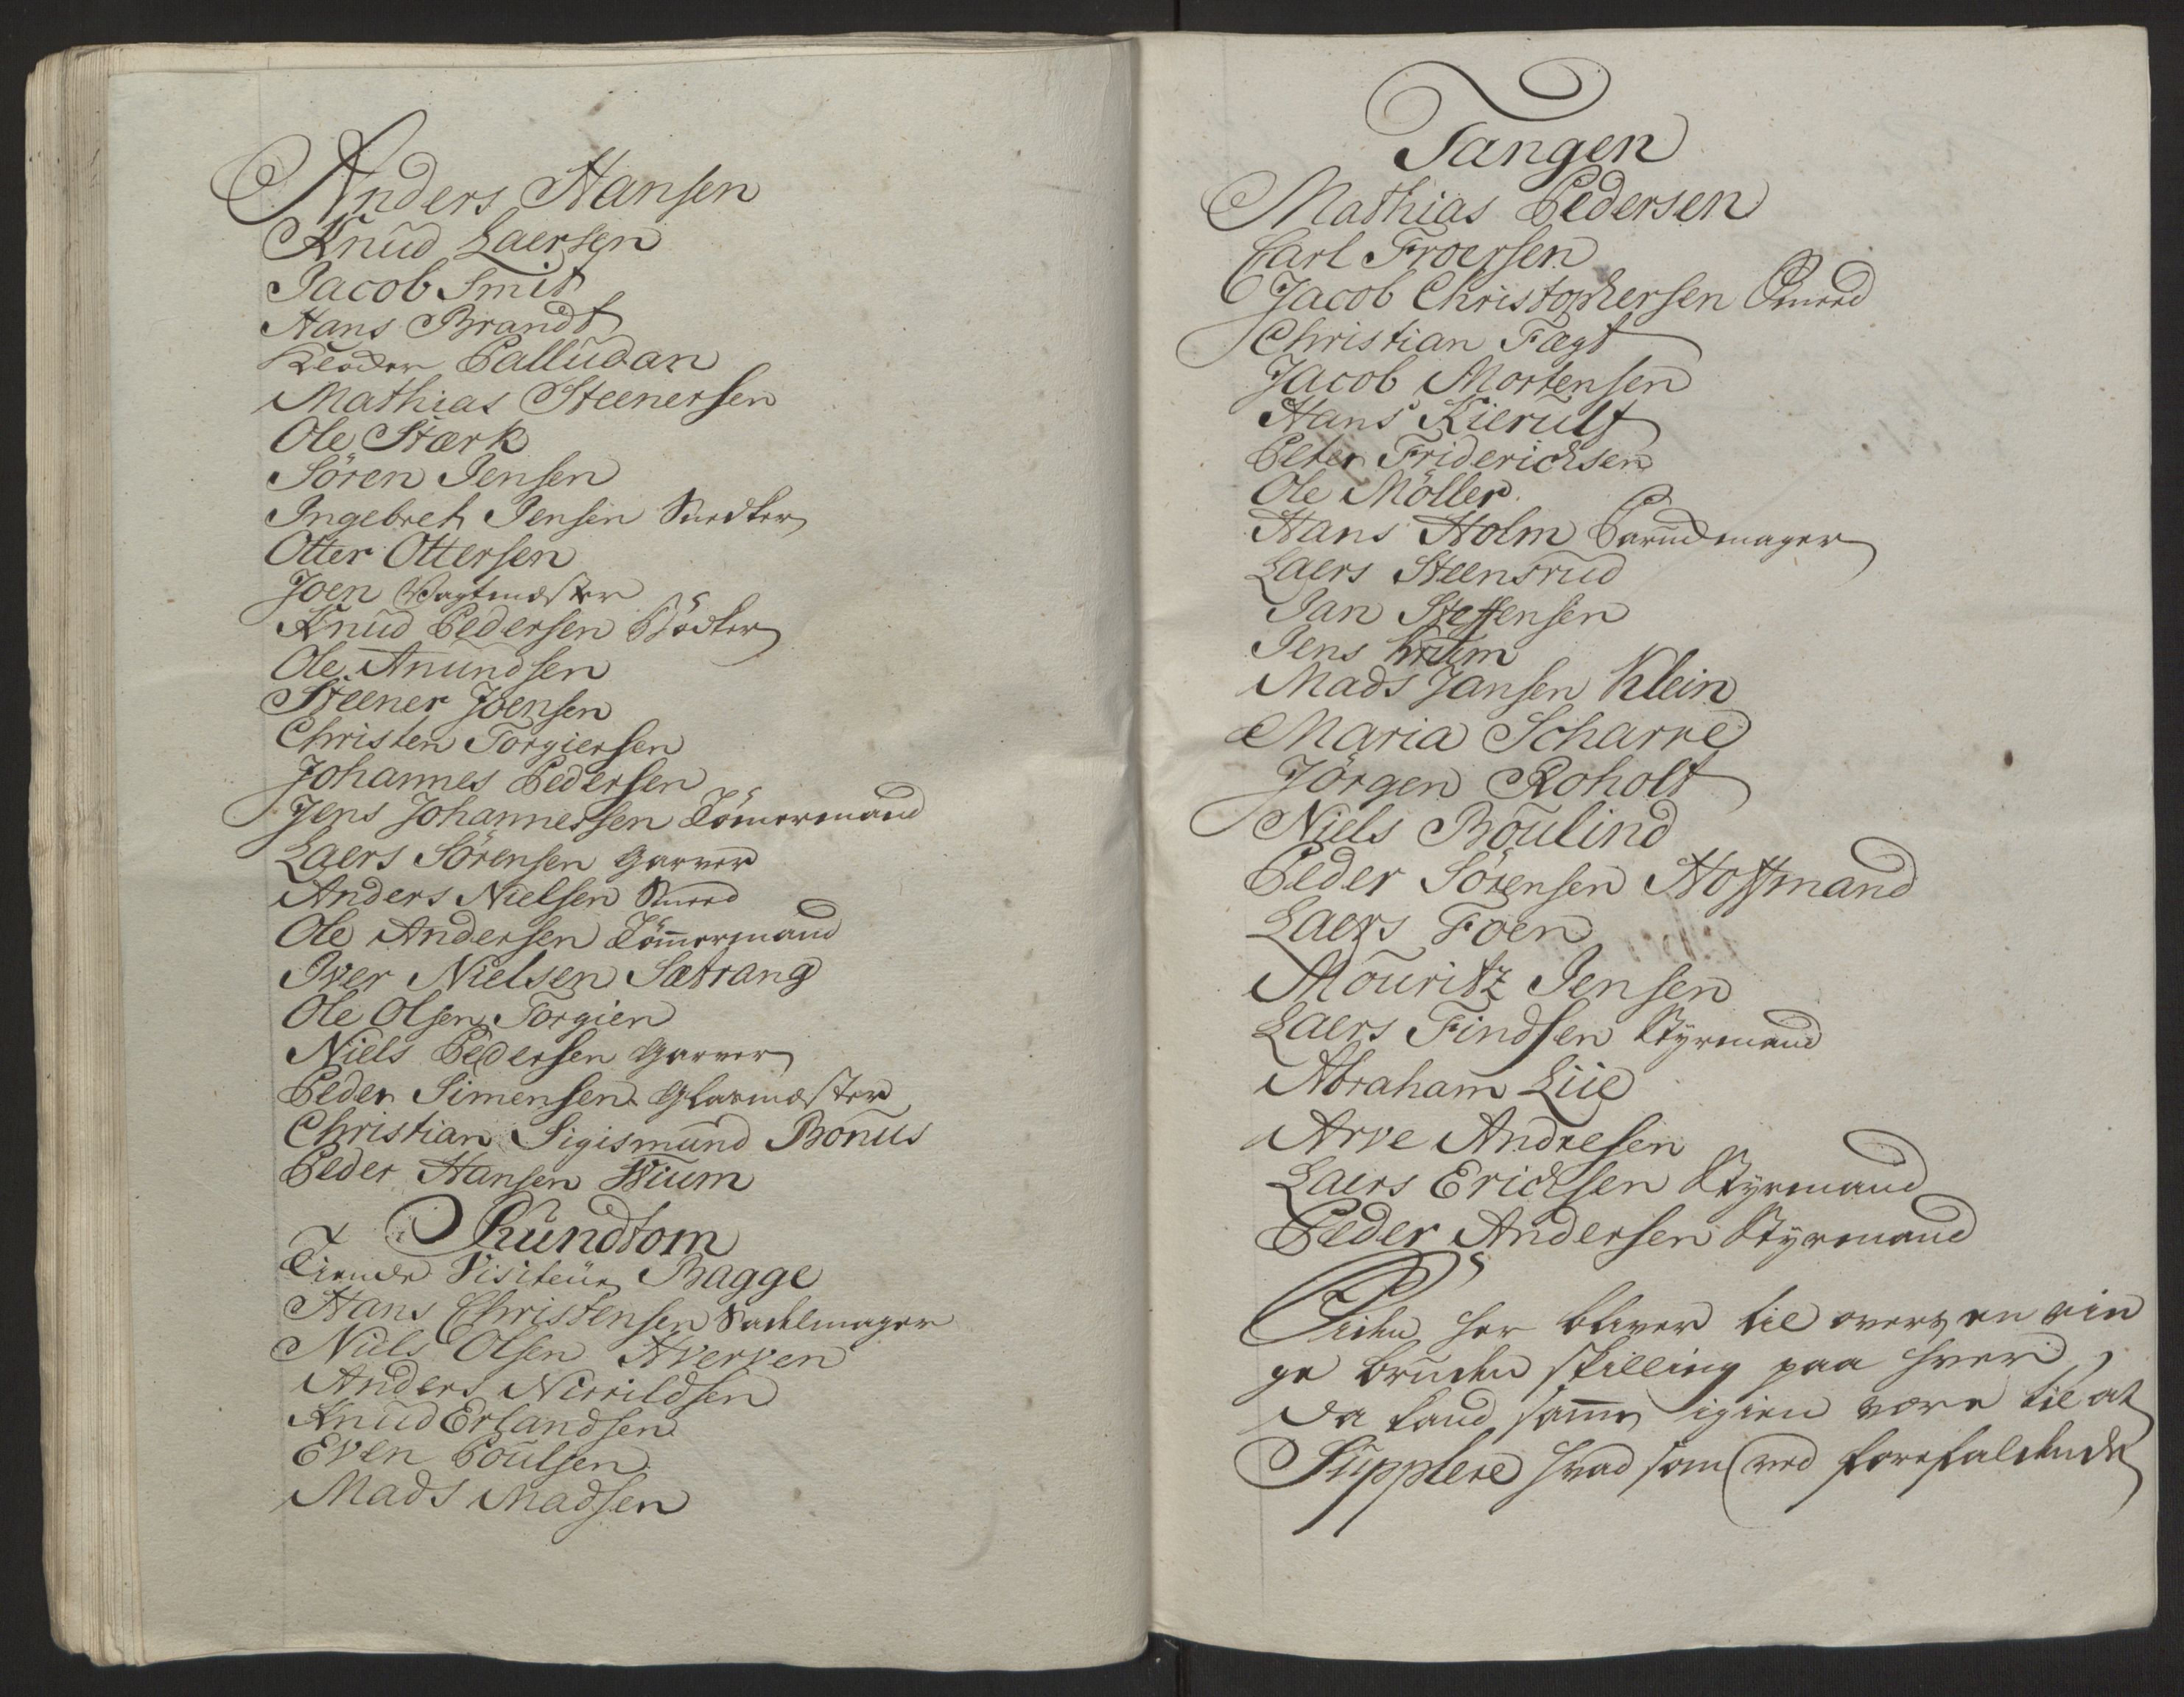 Anders Hansen
Knud Laersen
Jacob Smit
Hans Brandt
Palludan
Mathias Steenersen
Ole Stærk
Sören Jensen
Ingebret Jensen Snedker
Otter Ottersen
Joen Vagtmæster
Knud Pedersen Bödker
Ole Anundsen
Steener Joensen
Christen Torgiersen
Johannes Pedersen
Jens Johannessen Tömermand
Laers Sörensen Garver
Anders Nielsen Smed
Ole Andersen Tömermand
Iver Nielsen Sætrang
Ole Olsen Torgien
Niels Pedersen Garver
Peder Simensen Glarmæster
Christian Sigismund Bonus
Peder Hansen Wium
Rundtom
Tiende Visiteur Bagge
Hans Christensen Sadelmager
Niels Olsen Averven
Anders Nirrildsen
Knud Erlandsen
Even Poulsen
Mads Madsen
Tangen
Mathias Pedersen
Carl Froersen
Jacob Christophersen Smed
Christian Fægt
Jacob Mortensen
Hans Kierulf
Peter Friderichsen
Ole Möller
Hans Holm Parudmager
Laers Steensrud
Jan Steffensen
Jens Krum
Mads Jansen Klein
Maria Scharre
Jörgen Roholt
Niels Boulind
Peder Sörensen Hoffmand
Laers Foen
Mouritz Jensen
Laers Findsen Styrmand
Abraham Liie
Arve Andresen
Laers Erichsen Styrmand
Peder Andersen Styrmand
Siden her bliver til overs en rin
ge bruden skilling paa hver,
da kand samme igien være til at
Supplere hvad som ved forefaldende